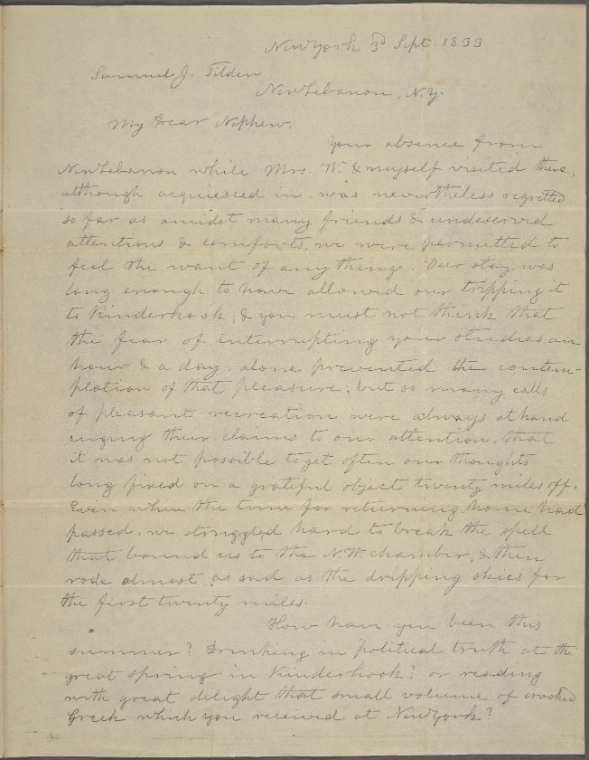 New York 3d Sept. 1833
Samuel J. Tilden
New Lebanon, N.Y.
My Dear Nephew.
Your absence from
New Lebanon while Mrs. W. & myself visited there,
although acquiesced in, was nevertheless regretted
so far as amidst many friends & undeserved
attentions & comforts, we were permitted to
feel the want of any thing. Our stay was
long enough to have allowed our tripping it
to Kinderhook, & you must not think that
the fear of interrupting your studies an
hour & a day, alone prevented the contem-
plation of that pleasure; but so many calls
of pleasant recreation were always at hand
urging their claims to our attention, that
it was not possible to get often our thoughts
long fixed on a grateful object twenty miles off.
Even when the time for returning home had
passed, we struggled hard to break the spell
that bound us to the N.W. chamber, & then
rode almost as sad as the dripping skies for
the first twenty miles.
How have you been this
summer? Drinking in political truth at the
great spring in Kinderhook? or reading
with great delight that small volume of crooked
Greek which you received at New York?